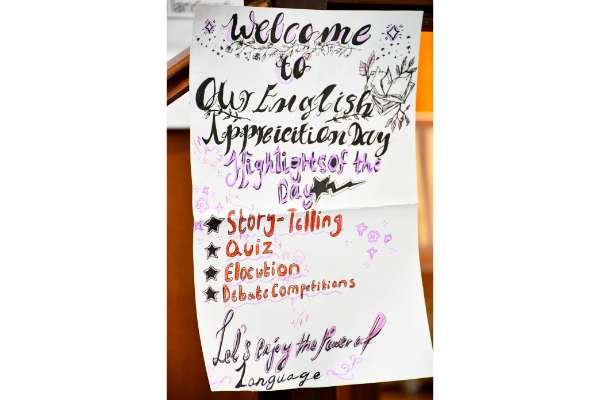 Welcome
to
Our English
Appreicition Day
Highlights of the
Day
Story-Telling
Quiz
Elocution
Debate Competitions
Let's enjoy the Power of
Language